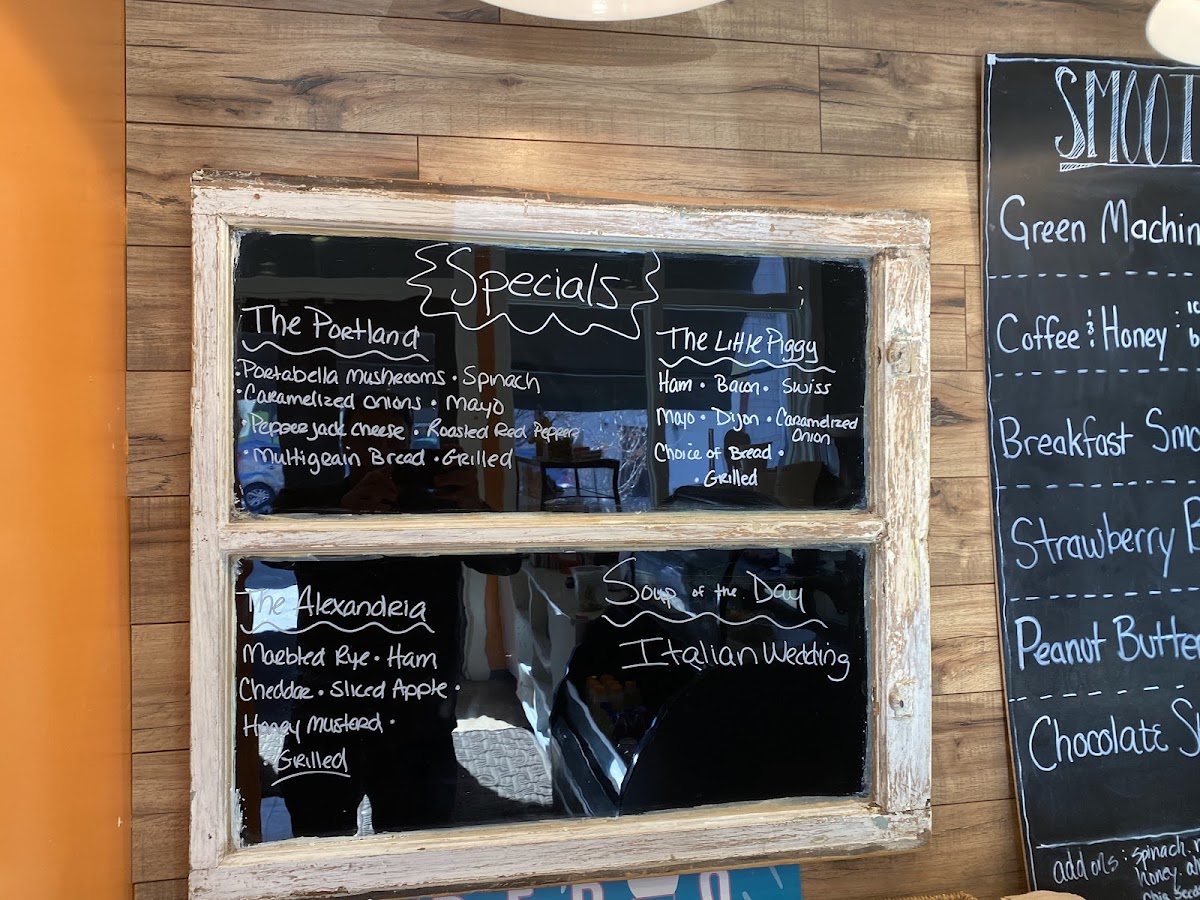 Specials
The Portland
• Portabella Mushrooms • Spinach
• Caramelized Onions • Mayo
• Pepper jack cheese • Roasted Red Peppers
• Multigrain Bread • Grilled
The Little Piggy
Ham • Bacon • Swiss
Mayo • Dijon • Caramelized
Onion
Choice of Bread •
• Grilled
The Alexandria
Marbled Rye • Ham
Cheddar • Sliced Apple •
Honey Mustard •
• Grilled
Soup of the Day
Italian Wedding
SMOOT
Green Machin
Coffee & Honey
Breakfast Smo
Strawberry B
Peanut Butter
Chocolate S
add ons: spinach,
honey, al
chia seeds